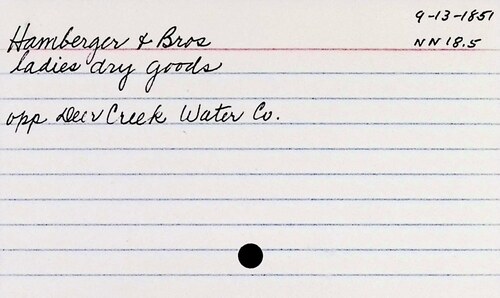 9-13-1851
Hamberger & Bros
NN 18.5
ladies dry goods
opp Deer Creek Water Co.